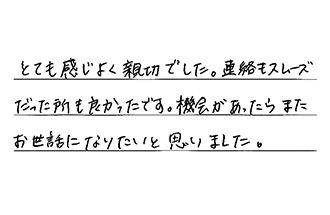 とても感じよく親切でした。連絡もスムーズ
だった所も良かったです。機会があったらまた
お世話になりたいと思いました。